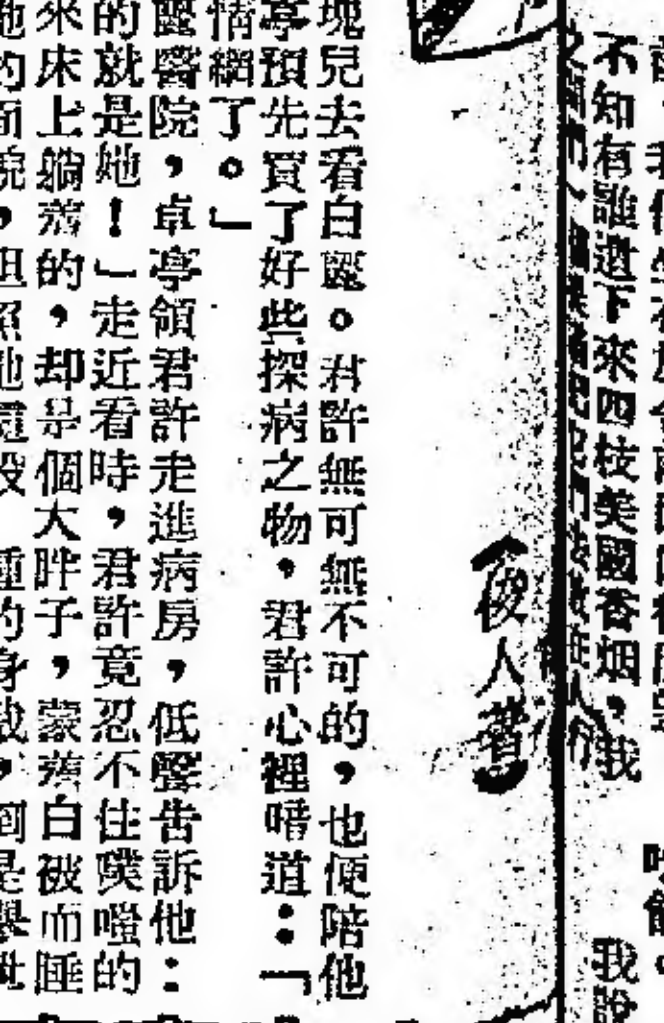 不知有誰遺下來四枝美國香烟，我
我說
俊人著
塊兒去看白麗。君許無可無不可的，也便陪他
亭預先買了好些探病之物，君許心裡暗道：「
情網了。」
麗醫院，卓亭領君許走進病房，低聲告訴他：
的就是她！」走近看時，君許竟忍不住噗嗤的
來床上躺着的，却是個大胖子，蒙着白被而睡
她的面貌，但照他這般 種的身段，倒是舉世